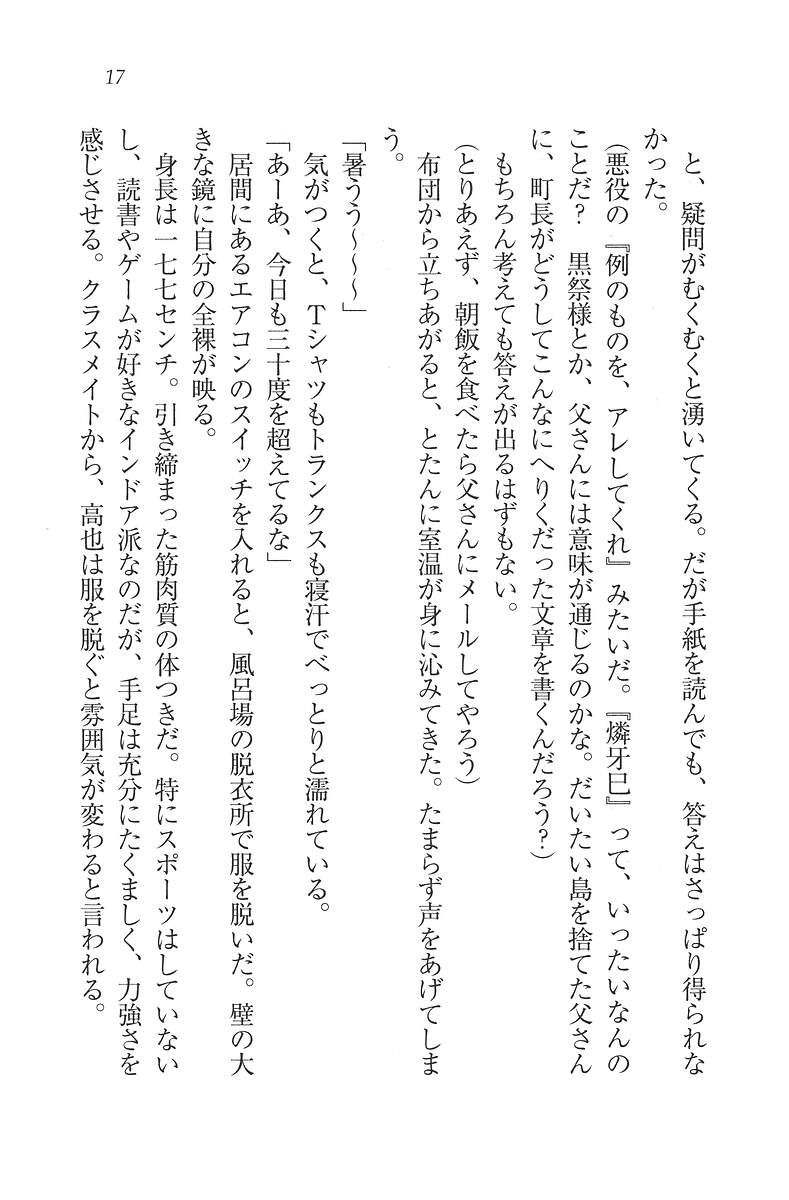 17
と、疑問がむくむくと湧いてくる。だが手紙を読んでも、答えはさっぱり得られな
かった。
（悪役の『例のものを、アレしてくれ』みたいだ。『燐牙巳』って、いったいなんの
ことだ？　黒祭様とか、父さんには意味が通じるのかな。だいたい島を捨てた父さん
に、町長がどうしてこんなにへりくだった文章を書くんだろう？）
もちろん考えても答えが出るはずもない。
（とりあえず、朝飯を食べたら父さんにメールしてやろう）
布団から立ちあがると、とたんに室温が身に沁みてきた。たまらず声をあげてしま
う。
「暑うう～～～」
気がつくと、Ｔシャツもトランクスも寝汗でべっとりと濡れている。
「あーあ、今日も三十度を超えてるな」
居間にあるエアコンのスイッチを入れると、風呂場の脱衣所で服を脱いだ。壁の大
きな鏡に自分の全裸が映る。
身長は一七七センチ。引き締まった筋肉質の体つきだ。特にスポーツはしていない
し、読書やゲームが好きなインドア派なのだが、手足は充分にたくましく、力強さを
感じさせる。クラスメイトから、高也は服を脱ぐと雰囲気が変わると言われる。